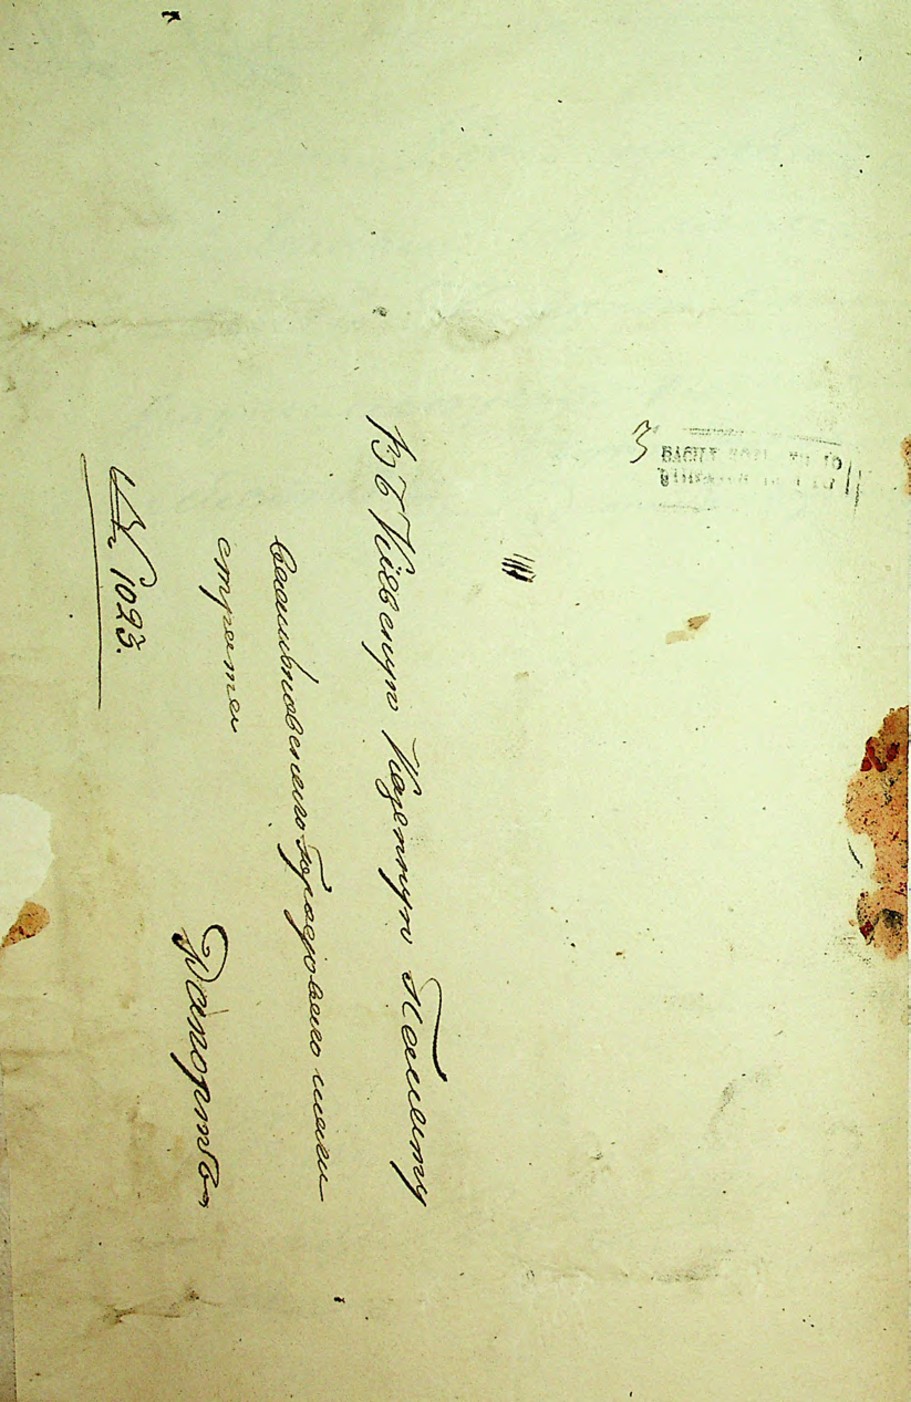 3
Въ Кіевскую Казенную Палату
Васильковскаго Городоваго маги
страта
Рапортъ
№ 1023.